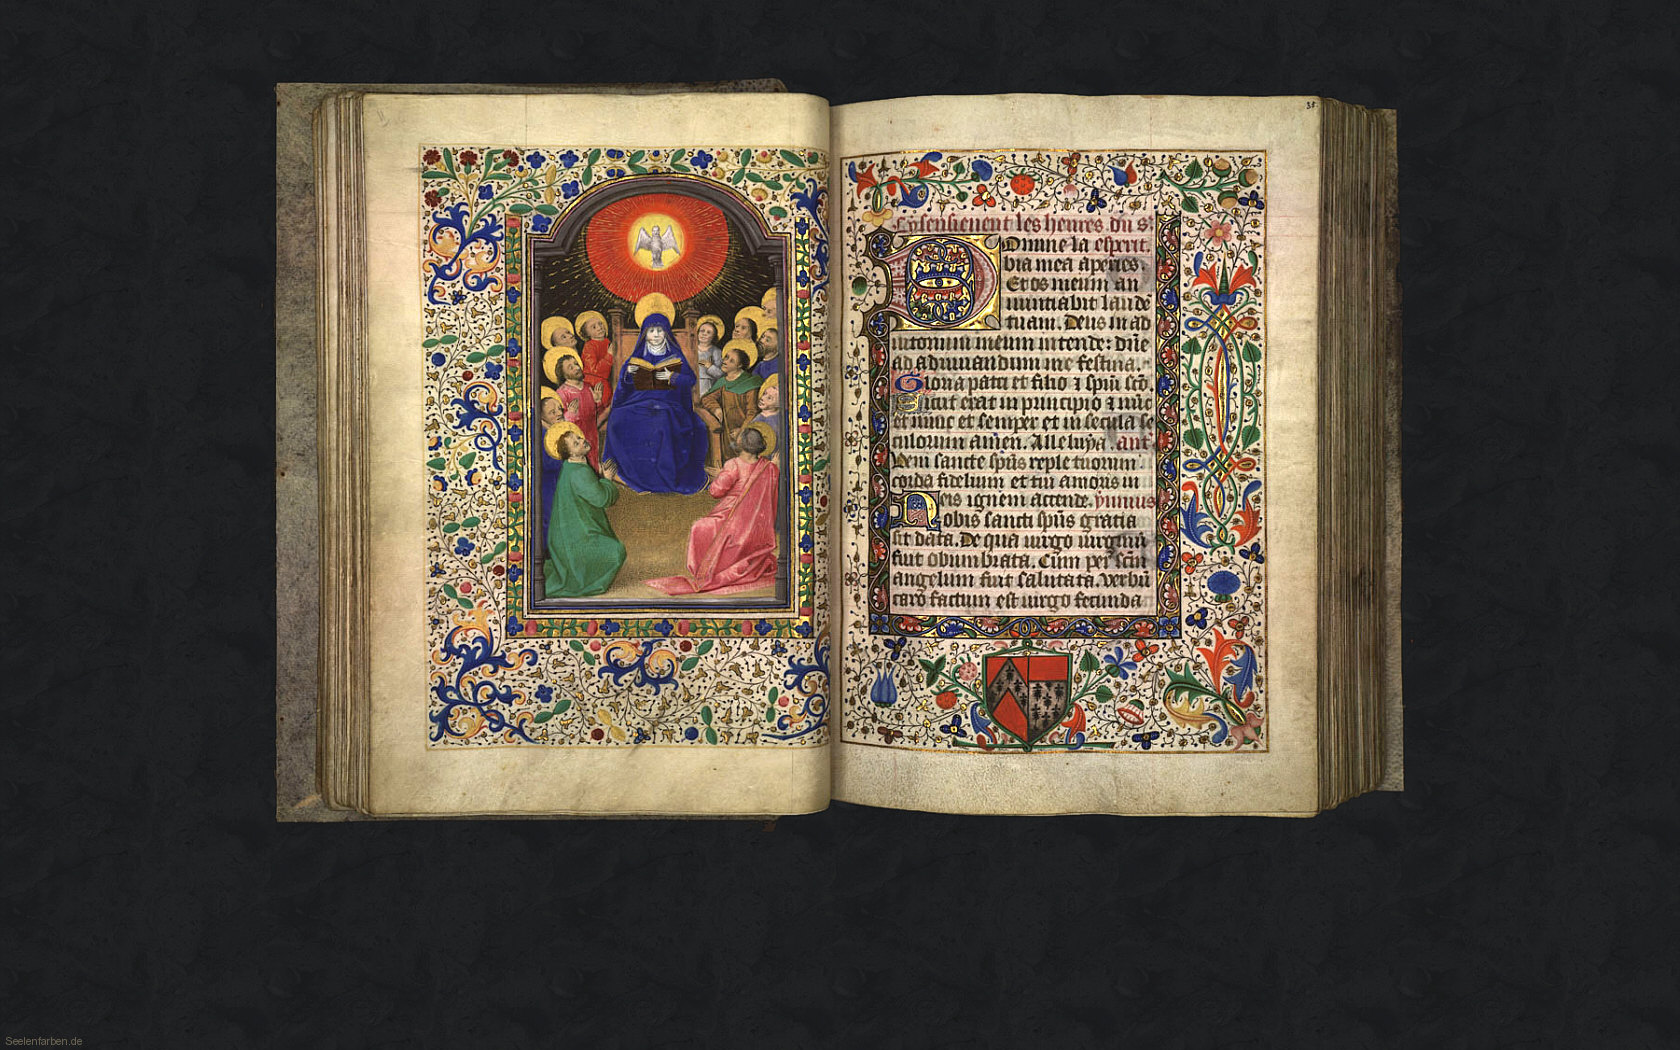 35
Cy sensuenent les heures du s^t
Domine la esperit.
bia mea aperies
Et os meum an
nuntiabit laudē
tuam. Deus in ad
iutorium meum intende: dn̄e
ad adiuuandum me festina.
Gloria patri et filio ⁊ spiū scō.
Sicut erat in principio ⁊ nūc
et nunc et semper et in secula se
culorum amen. Alleluya. ant'
Veni sancte sp̄us reple tuorum
corda fidelium et tui amoris in
eis ignem accende. ymnus
Nobis sancti sp̄us gratia
sit data. De qua uirgo uirginū
fuit obumbrata. Cum per scm̄
angelum fuit salutata. verbū
caro factum est uirgo fecunda
Seelenfarben.de